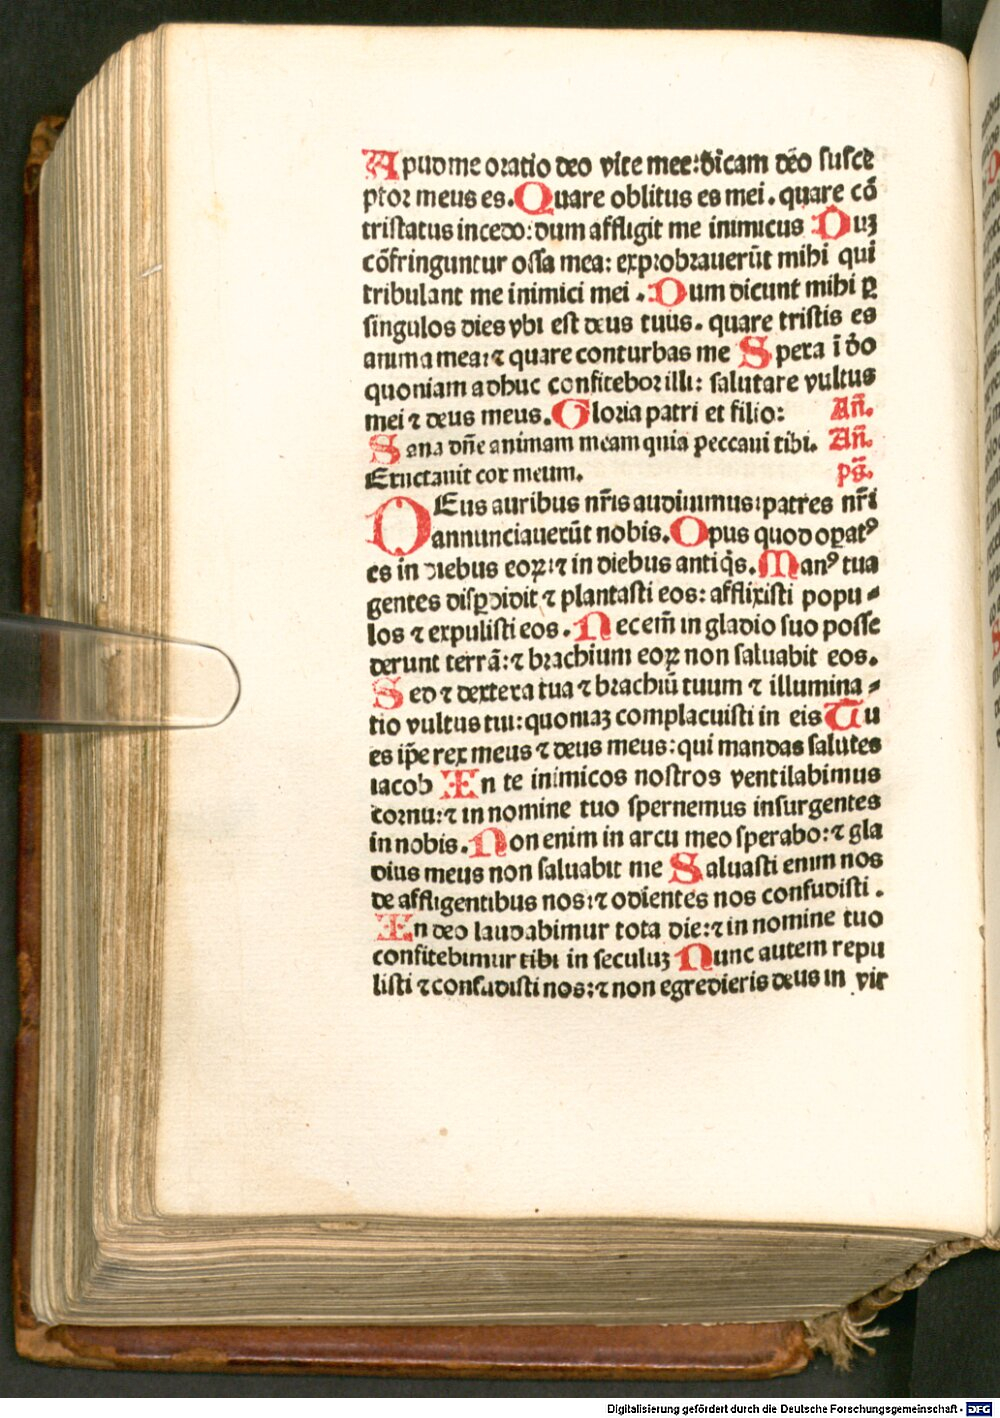 Apud me oratio deo vite mee: dicam deo susce
ptor meus es. Quare oblitus es mei. quare cō
tristatus incedo: dum affligit me inimicus Duꝫ
cōfringuntur ossa mea: exprobrauerūt mihi qui
tribulant me inimici mei. Dum dicunt mihi ꝑ
singulos dies vbi est deus tuus. quare tristis es
anima mea: ⁊ quare conturbas me Spera ī dō
quoniam adhuc confitebor illi: salutare vultus
mei ⁊ deus meus. Gloria patri et filio: Añ.
Sana dñe animam meam quia peccaui tibi. Añ.
Eructauit cor meum. ps̄.
DEus auribus nr̄is audiuimus: patres nr̄i
annunciauerūt nobis. Opus quod oꝑatꝰ
es in diebus eoꝝ: ⁊ in diebus antiq̄s. Manꝰ tua
gentes disꝑdidit ⁊ plantasti eos: afflixisti popu⸗
los ⁊ expulisti eos. Nec em̄ in gladio suo posse
derunt terrā: ⁊ brachium eoꝝ non saluabit eos.
Sed ⁊ dextera tua ⁊ brachiū tuum ⁊ illumina⸗
tio vultus tui: quoniaꝫ complacuisti in eis Tu
es ip̄e rex meus ⁊ deus meus: qui mandas salutes
iacob In te inimicos nostros ventilabimus
cornu: ⁊ in nomine tuo spernemus insurgentes
in nobis. Non enim in arcu meo sperabo: ⁊ gla
dius meus non saluabit me Saluasti enim nos
de affligentibus nos: ⁊ odientes nos confudisti.
In deo laudabimur tota die: ⁊ in nomine tuo
confitebimur tibi in seculuꝫ Nunc autem repu
listi ⁊ confudisti nos: ⁊ non egredieris deus in vir
Digitalisierung gefördert durch die Deutsche Forschungsgemeinschaft - DFG